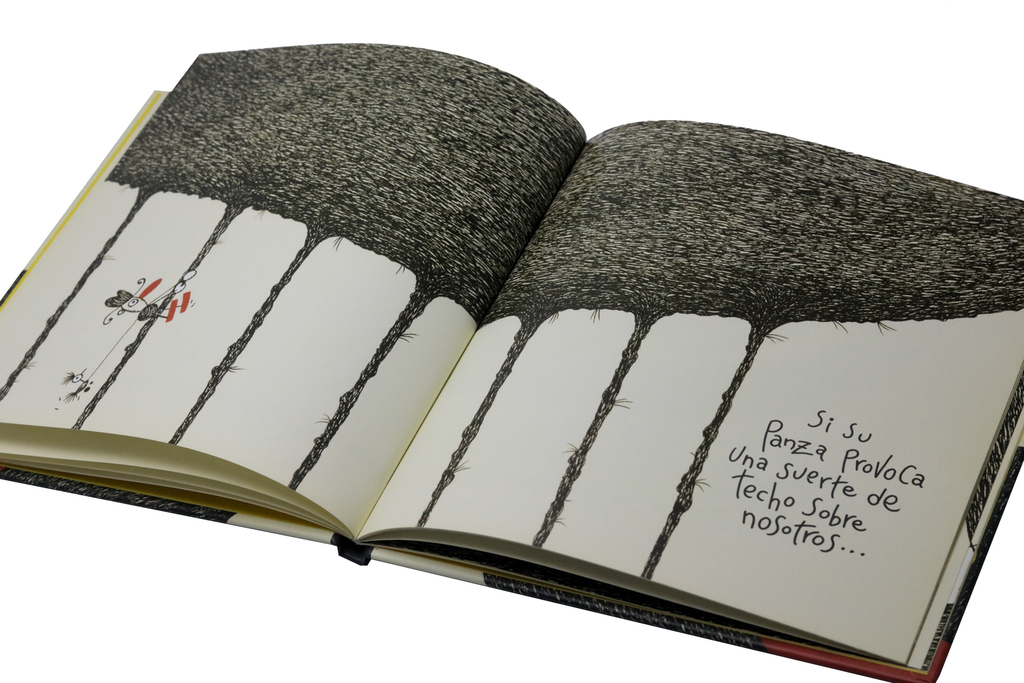 Si su
Panza Provoca
una suerte de
techo sobre
nosotros...